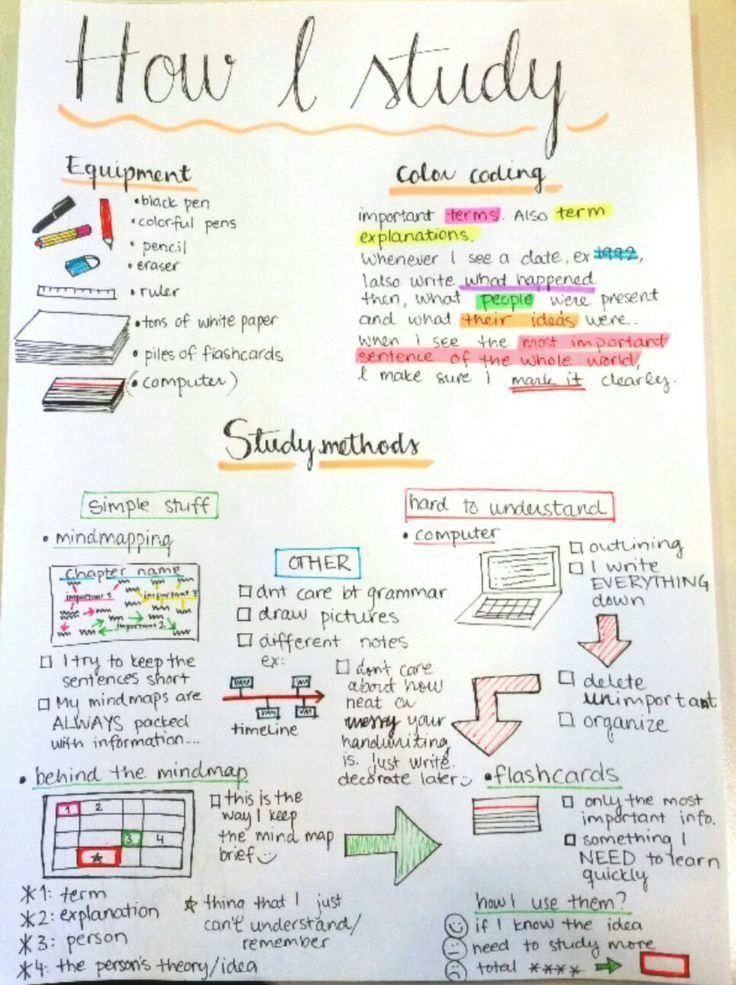 How I study
Equipment
• black pen
• colorful pens
• pencil
• eraser
• ruler
• tons of white paper
• piles of flashcards
(• computer)
Color coding
important terms. Also term
explanations.
Whenever I see a date, ex 1992,
I also write what happened
then, what people were present
and what their ideas were..
when I see the most important
sentence of the whole world,
I make sure I mark it clearly.
Study methods
Simple stuff
• mindmapping
Chapter name
important 1
important 3
important 2
I try to keep the
sentences short
My mindmaps are
ALWAYS packed
with information....
OTHER
dnt care bt grammar
draw pictures
different notes
ex:
timeline
dont care
about how
neat or
messy your
handwriting
is. Just write.
decorate later
hard to understand
• computer
outlining
I write
EVERYTHING
down
delete
unimportant
organize
• behind the mindmap
1 2
3 4
*
this is the
way I keep
the mind map
brief
*1: term
*2: explanation
*3: person
*4: the person's theory/idea
* thing that I just
can't understand/
remember
• flashcards
only the most
important info.
something I
NEED to learn
quickly
how I use them?
if I know the idea
need to study more
total ****